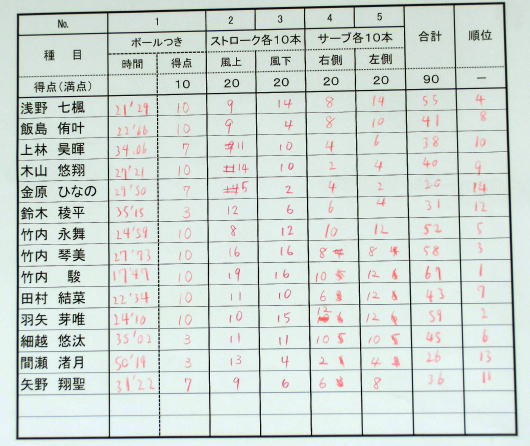 No. 1 2 3 4 5
種目 ボールつき ストローク各10本 サーブ各10本 合計 順位
時間 得点 風上 風下 右側 左側
得点(満点) 10 20 20 20 20 90 −
浅野 七楓 21'29 10 9 14 8 14 55 4
飯島 侑叶 22'66 10 9 4 8 10 41 8
上林 昊暉 34.06 7 11 10 4 6 38 10
木山 悠翔 27'21 10 14 10 2 4 40 9
金原 ひなの 29'50 7 5 2 4 2 20 14
鈴木 稜平 35'15 3 12 6 6 4 31 12
竹内 永舞 24'59 10 8 12 10 12 52 5
竹内 琴美 27'73 10 16 16 8 8 58 3
竹内 駿 17'47 10 19 16 10 12 67 1
田村 結菜 22'34 10 11 10 6 6 43 7
羽矢 芽唯 24'10 10 10 15 12 12 59 2
細越 悠汰 35'02 3 11 11 10 10 45 6
間瀬 渚月 50'19 3 13 4 2 4 26 13
矢野 翔聖 31'22 7 9 6 6 8 36 11